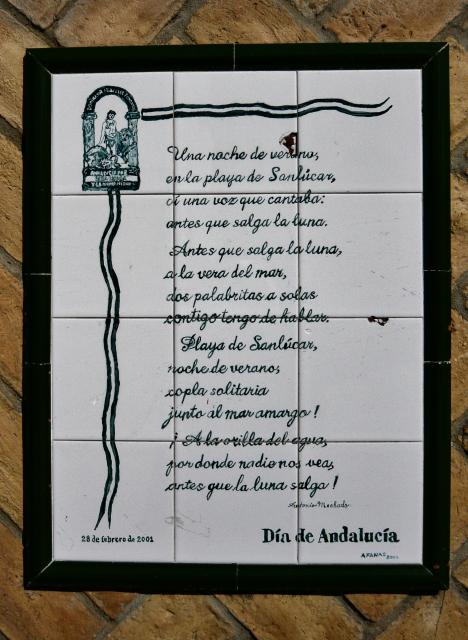 Una noche de verano,
en la playa de Sanlúcar,
oí una voz que cantaba:
antes que salga la luna.
Antes que salga la luna,
a la vera del mar,
dos palabritas a solas
contigo tengo de hablar.
Playa de Sanlúcar,
noche de verano,
copla solitaria
junto al mar amargo!
¡A la orilla del agua,
por donde nadie nos vea,
antes que la luna salga!
Antonio Machado
28 de febrero de 2001
Día de Andalucía
AFANAS 2001